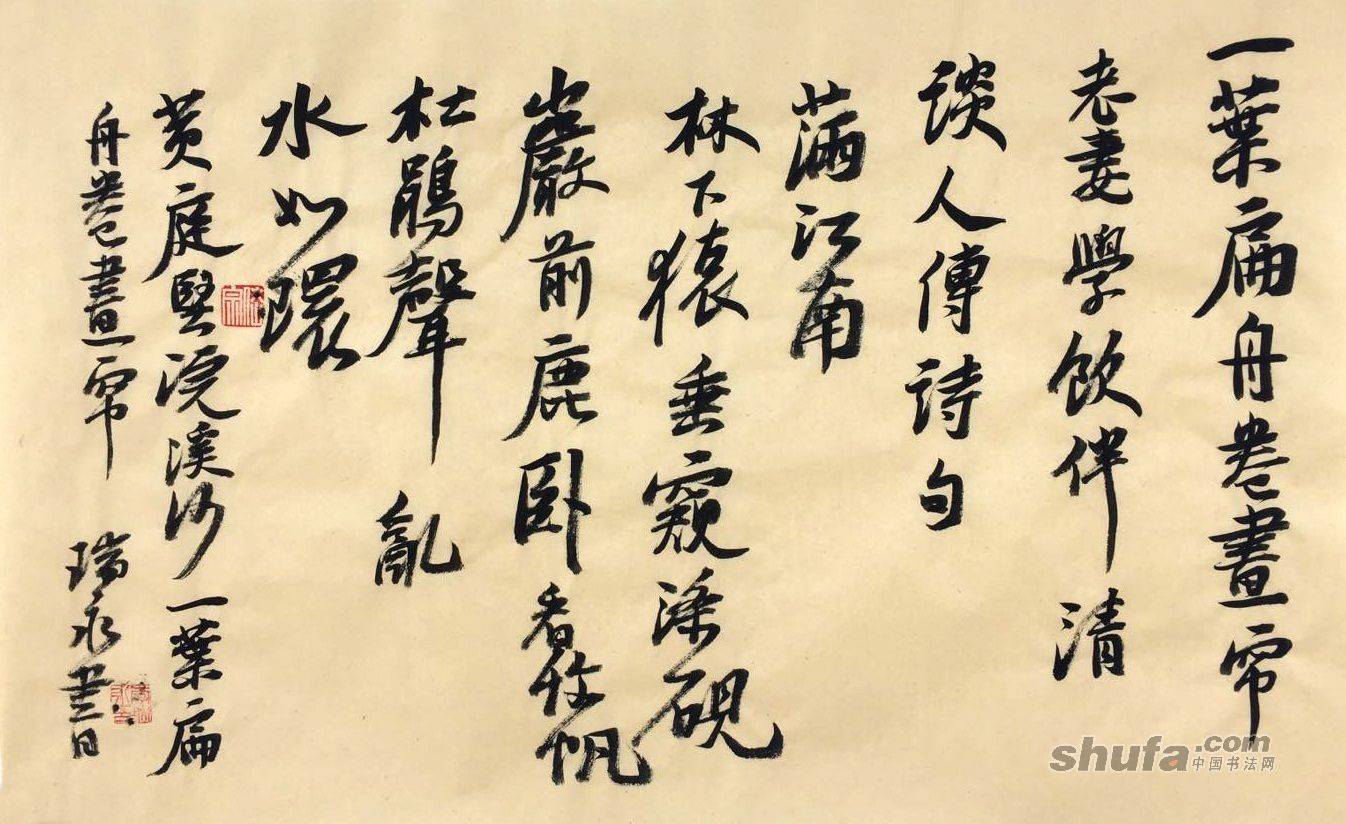 一葉扁舟卷畫帘
老妻學飲伴清
談人傳詩句
滿江南
林下猿垂窺滌硯
巖前鹿卧看收帆
杜鵑聲亂
水如環
黄庭堅浣溪沙一葉扁
舟卷畫帘 瑞永書
shufa.com
中国书法网